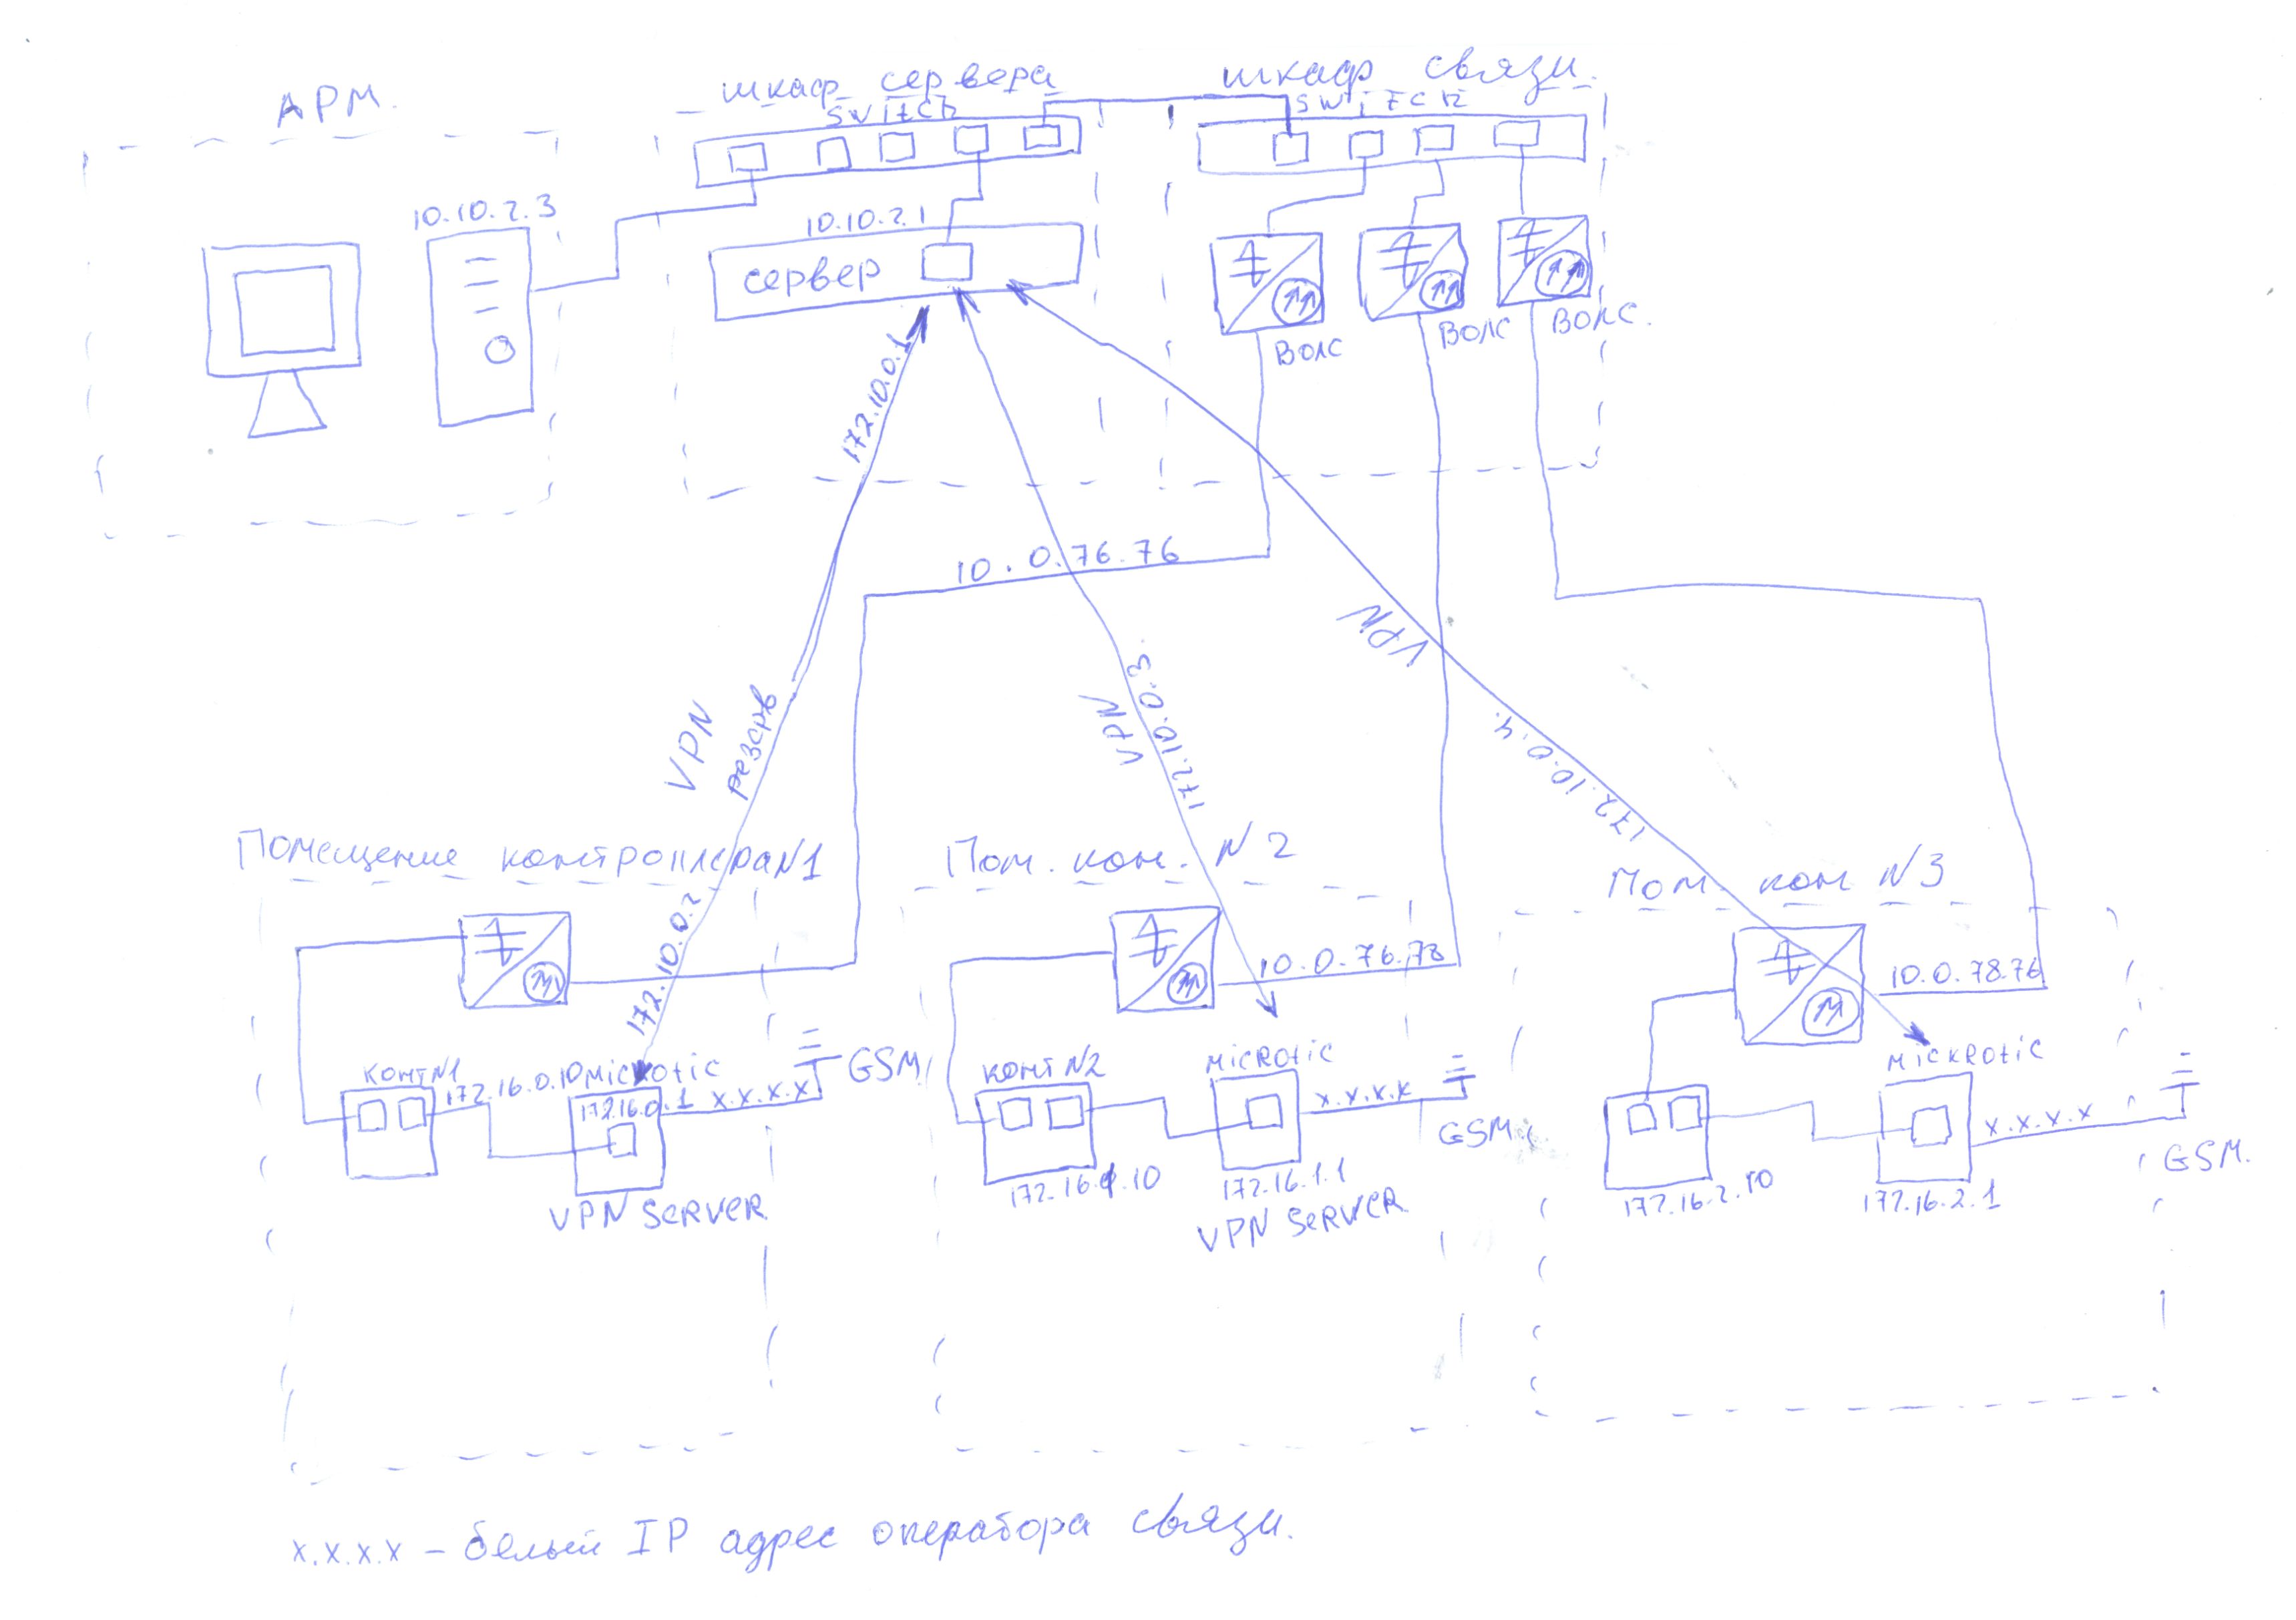 АРМ.
шкаф сервера
шкаф связи.
switch
switch
10.10.2.3
10.10.2.1
сервер
ВОЛС
ВОЛС
ВОЛС.
172.10.0.1
10.0.76.76
VPN
резерв
VPN
172.10.0.3.
VPN
172.10.0.4.
Помещение контроллера N1
Пом. кон. N 2
Пом. кон N 3
172.10.0.2
10.0.76.78
10.0.78.76
конт N1
172.16.0.10
Microtic
172.16.0.1
x.x.x.x
GSM
VPN SERVER
конт N2
Microtic
x.x.x.x
GSM.
172.16.1.10
172.16.1.1
VPN SERVER
Mickrotic
x.x.x.x
GSM.
172.16.2.10
172.16.2.1
x.x.x.x – белый IP адрес оператора связи.